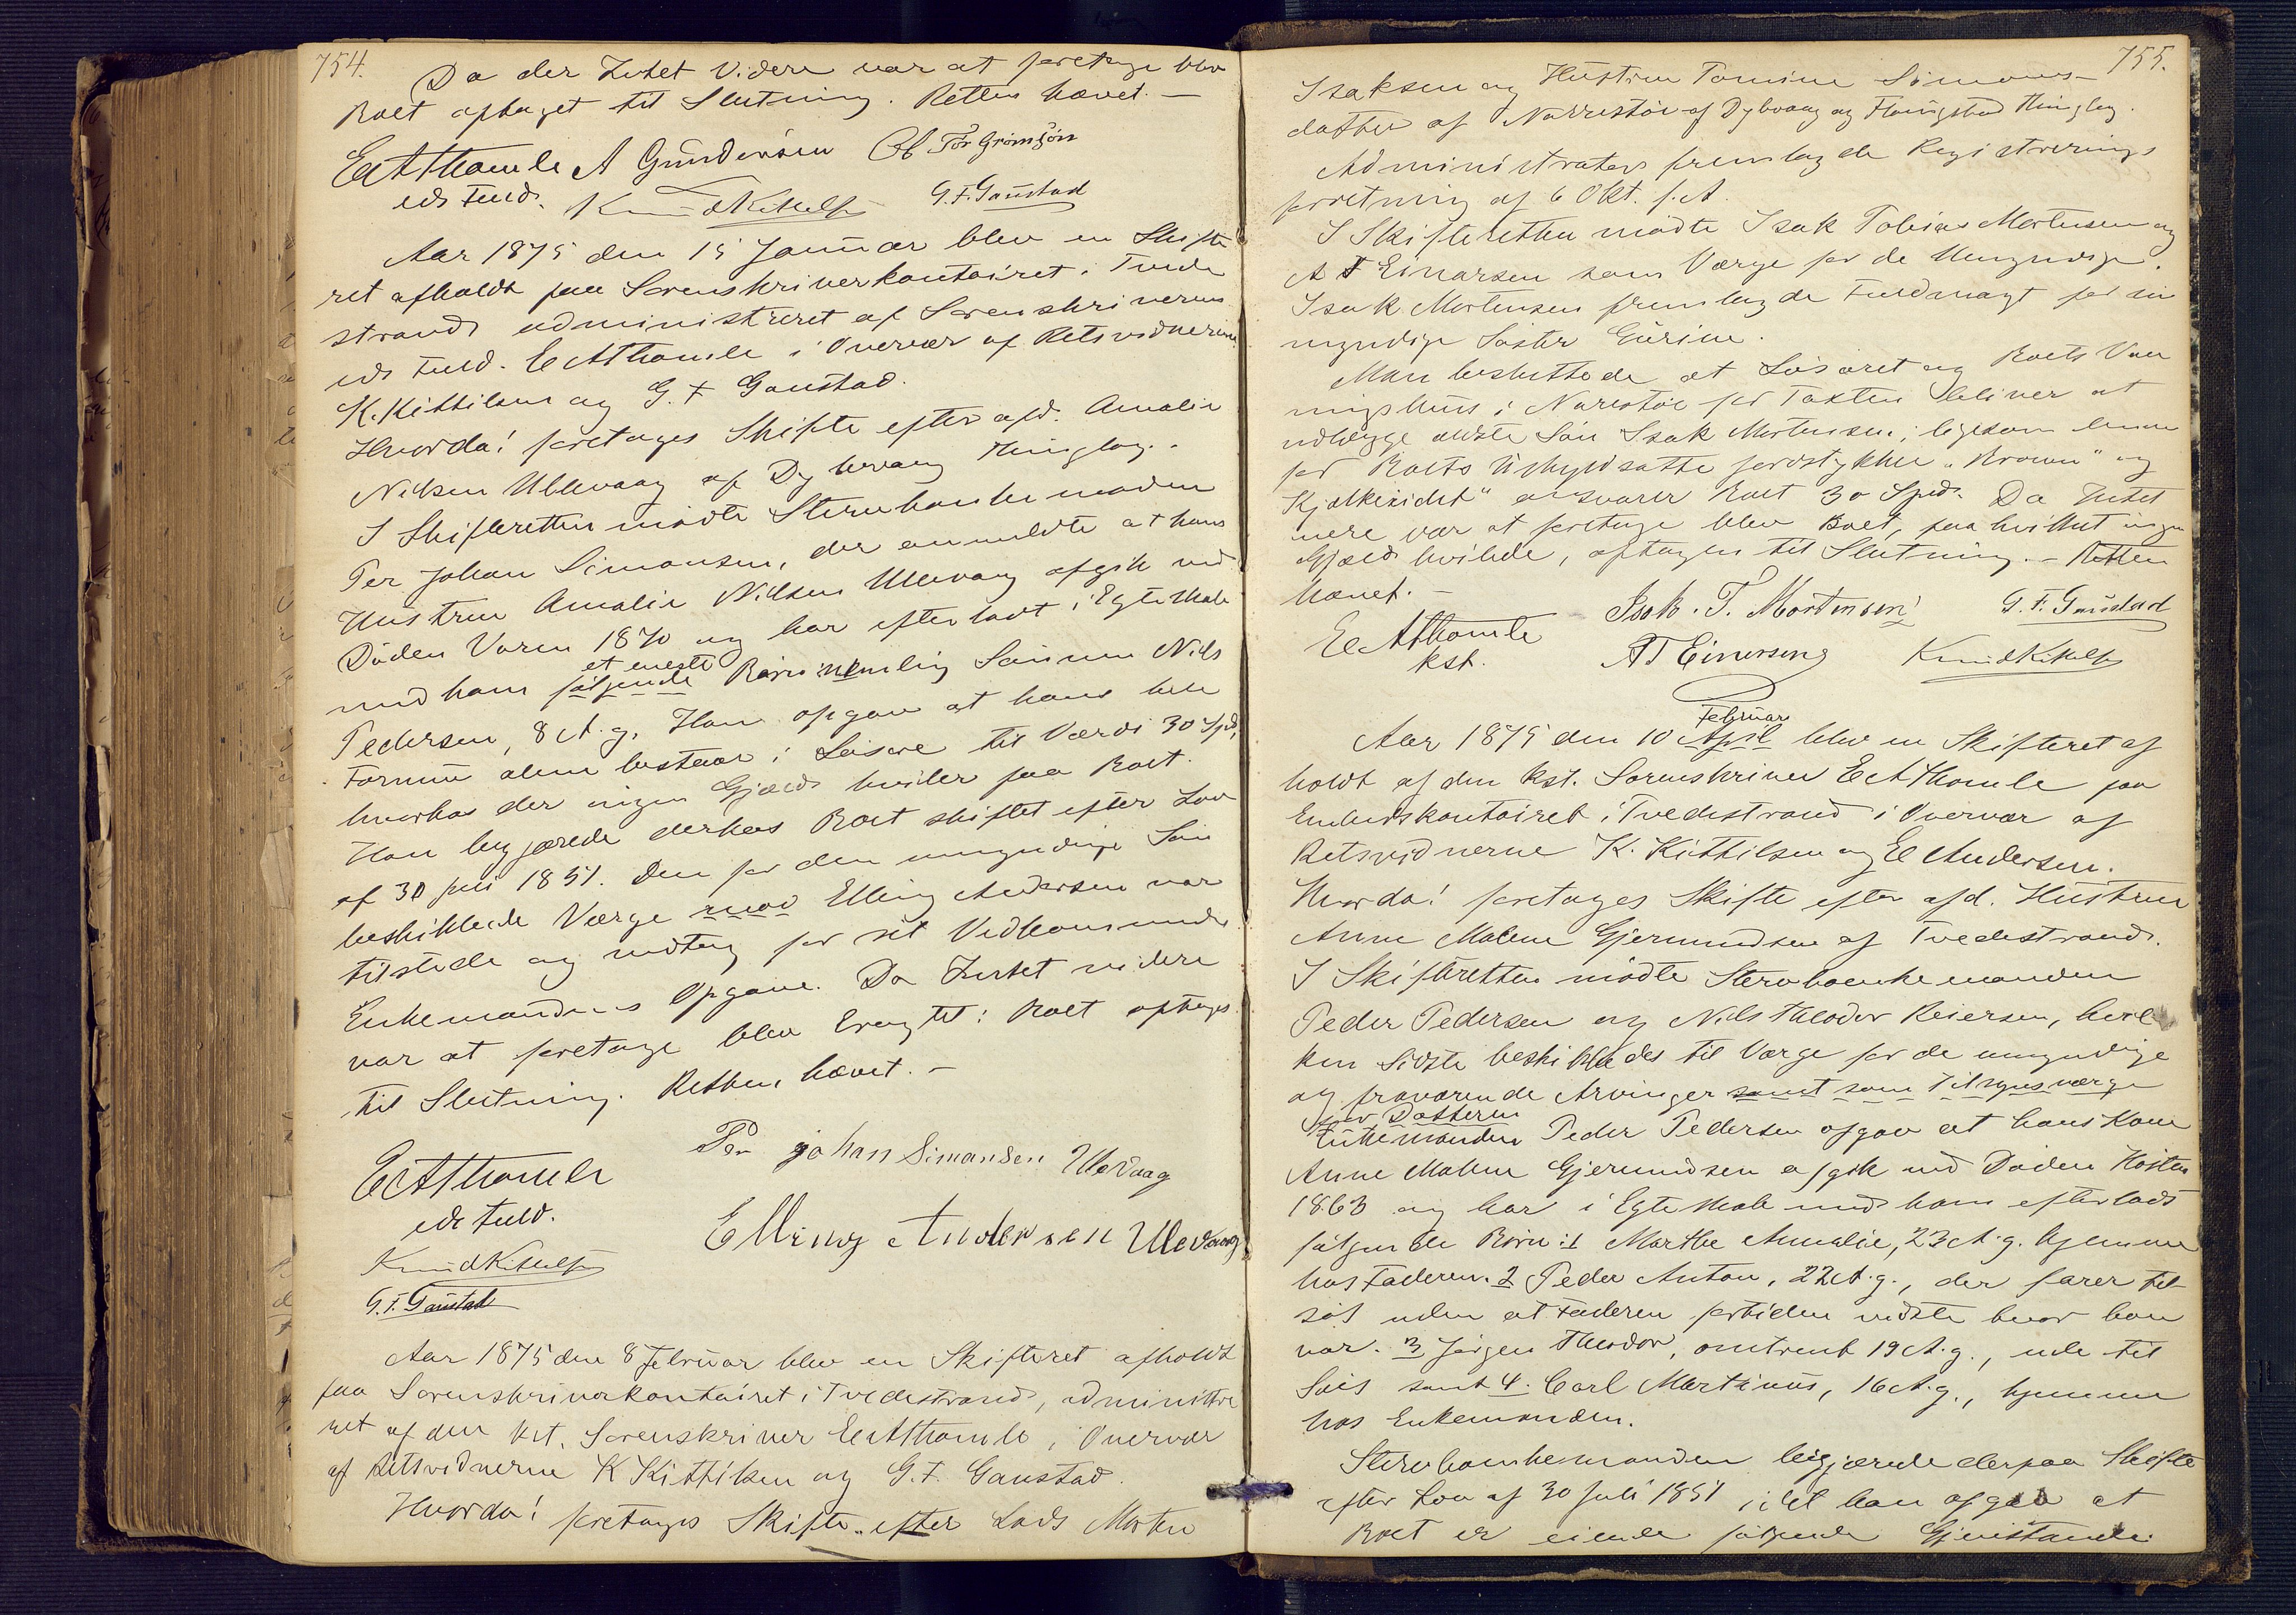 754.
Da der Intet videre var at foretage blev
Boet optaget til Slutning. Retten hævet. –
E A Thomle A Gundersen Ol. Tor Grømsøn
eds Fuld. Knud Kittilsen G. F. Gaustad
Aar 1875 den 15 Januar blev en Skifte
ret afholdt paa Sorenskriverkontoiret i Tvede
strand administreret af Sorenskriverens
eds Fuld. E A Thomle i Overvær af Retsvidnerne
K. Kittilsen og G. F Gaustad.
Hvorda! foretages Skifte efter afd. Amalie
Nilsen Ulevaag af Dybvaag Thinglag.
I Skifteretten mødte Stervboenkemanden
Per Johan Simonsen, der anmeldte at hans
Hustru Amalie Nilsen Ulevaag afgik ved
Døden Varen 1870 og har efterladt i Egteskab
et eneste
med ham følgende Barn nemlig Sønnen Nils
Pedersen, 8 A. g. Han opgav at hans hele
Formue alene bestaar i Løsøre til Værdi 30 Spd,
hvorhos der ingen Gjæld hviler paa Boet.
Han begjærede derhos Boet skiftet efter Lov
af 30 Juli 1851. Den for den umyndige Søn
beskikkede Værge Elling Andersen var
tilstede og vedtog for sit Vedkommende
Enkemandens Opgave. Da Intet videre
var at foretage blev Eragtet: Boet optages
til Slutning. Retten hævet. –
E A Thomle Per Johan Simonsen Ulevaag
eds Fuld.
Elling Andersen Ulevaag
Knud Kittilsen
G. F. Gaustad
Aar 1875 den 8 Februar blev en Skifteret afholdt
paa Sorenskriverkontoiret i Tvedestrand, administre
ret af den kst. Sorenskriver E A Thomle i Overvær
af Retsvidnerne K Kittilsen og G. F. Gaustad.
Hvorda! foretages Skifte efter Lods Morten
755.
Isaksen og Hustru Tomine Simons-
datter af Narrestøe af Dybvaag og Flaugstad Thinglag.
Administrator fremlagde Registrerings
forretning af 6 Okt. f. A.
I Skifteretten mødte Isak Tobias Mortensen og
A T Einarsen som Værge for de Umyndige.
Isak Mortensen fremlagde Fuldmagt for sin
myndige Søster Gurine.
Man besluttede at Løsøret og Boets Vaa
ningshuus i Narestøe for Taxten bliver at
udlægge ældste Søn Isak Mortensen, ligesom denne
for Boets Jordstykker "Broen" og
ansvarer Boet 30 Spd. Da Intet
mere var at foretage blev Boet, paa hvilket ingen
Gjæld hvilede, optagen til Slutning. – Retten
hævet. –
E A Thomle Isak. T. Mortensen G. F. Gaustad
kst. A T Einersen Knud Kittilsen
Februar
Aar 1875 den 10 April blev en Skifteret af
holdt af den kst. Sorenskriver E A Thomle paa
Embedskontoiret i Tvedestrand i Overvær af
Retsvidnerne K. Kittilsen og E Andersen.
Hvorda! foretages Skifte efter afd. Hustru
Anne Malene Gjermundsen af Tvedestrand.
I Skifteretten mødte Stervboenkemanden
Peder Pedersen og Nils Theodor Reiersen, hvil
ken sidste beskikkedes til Værge for de umyndige
og fraværende Arvinger samt som Tilsynsværge
for Datteren
Enkemanden Peder Pedersen opgav at hans Kone
Anne Malene Gjermundsen afgik ved Døden Høsten
1863 og har i Egteskab med ham efterladt
følgende Børn: 1 Marthe Amalie, 23 A. g. hjemme
hos Faderen. 2 Peder Anton, 22 A. g., der farer til-
søs uden at Faderen fortiden vidste hvor han
var. 3 Jørgen Theodor, omtrent 19 A. g., ude til
Søes samt 4. Carl Martinus, 16 A. g., hjemme
hos Enkemanden.
Stervboenkemanden begjærede derpaa Skifte
efter Lov af 30 Juli 1851, idet han opgav at
Boet er eiende følgende Gjenstande: